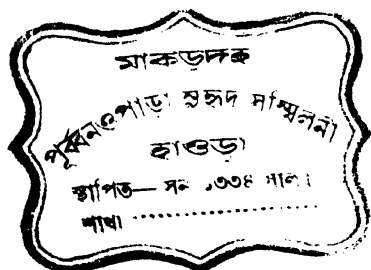 মাকড়দহ
পূর্ব্বনওপাড়া সুহৃদ সম্মিলনী
হাওড়া
স্থাপিত— সন ১৩৩৪ সাল।
শাখা ....................